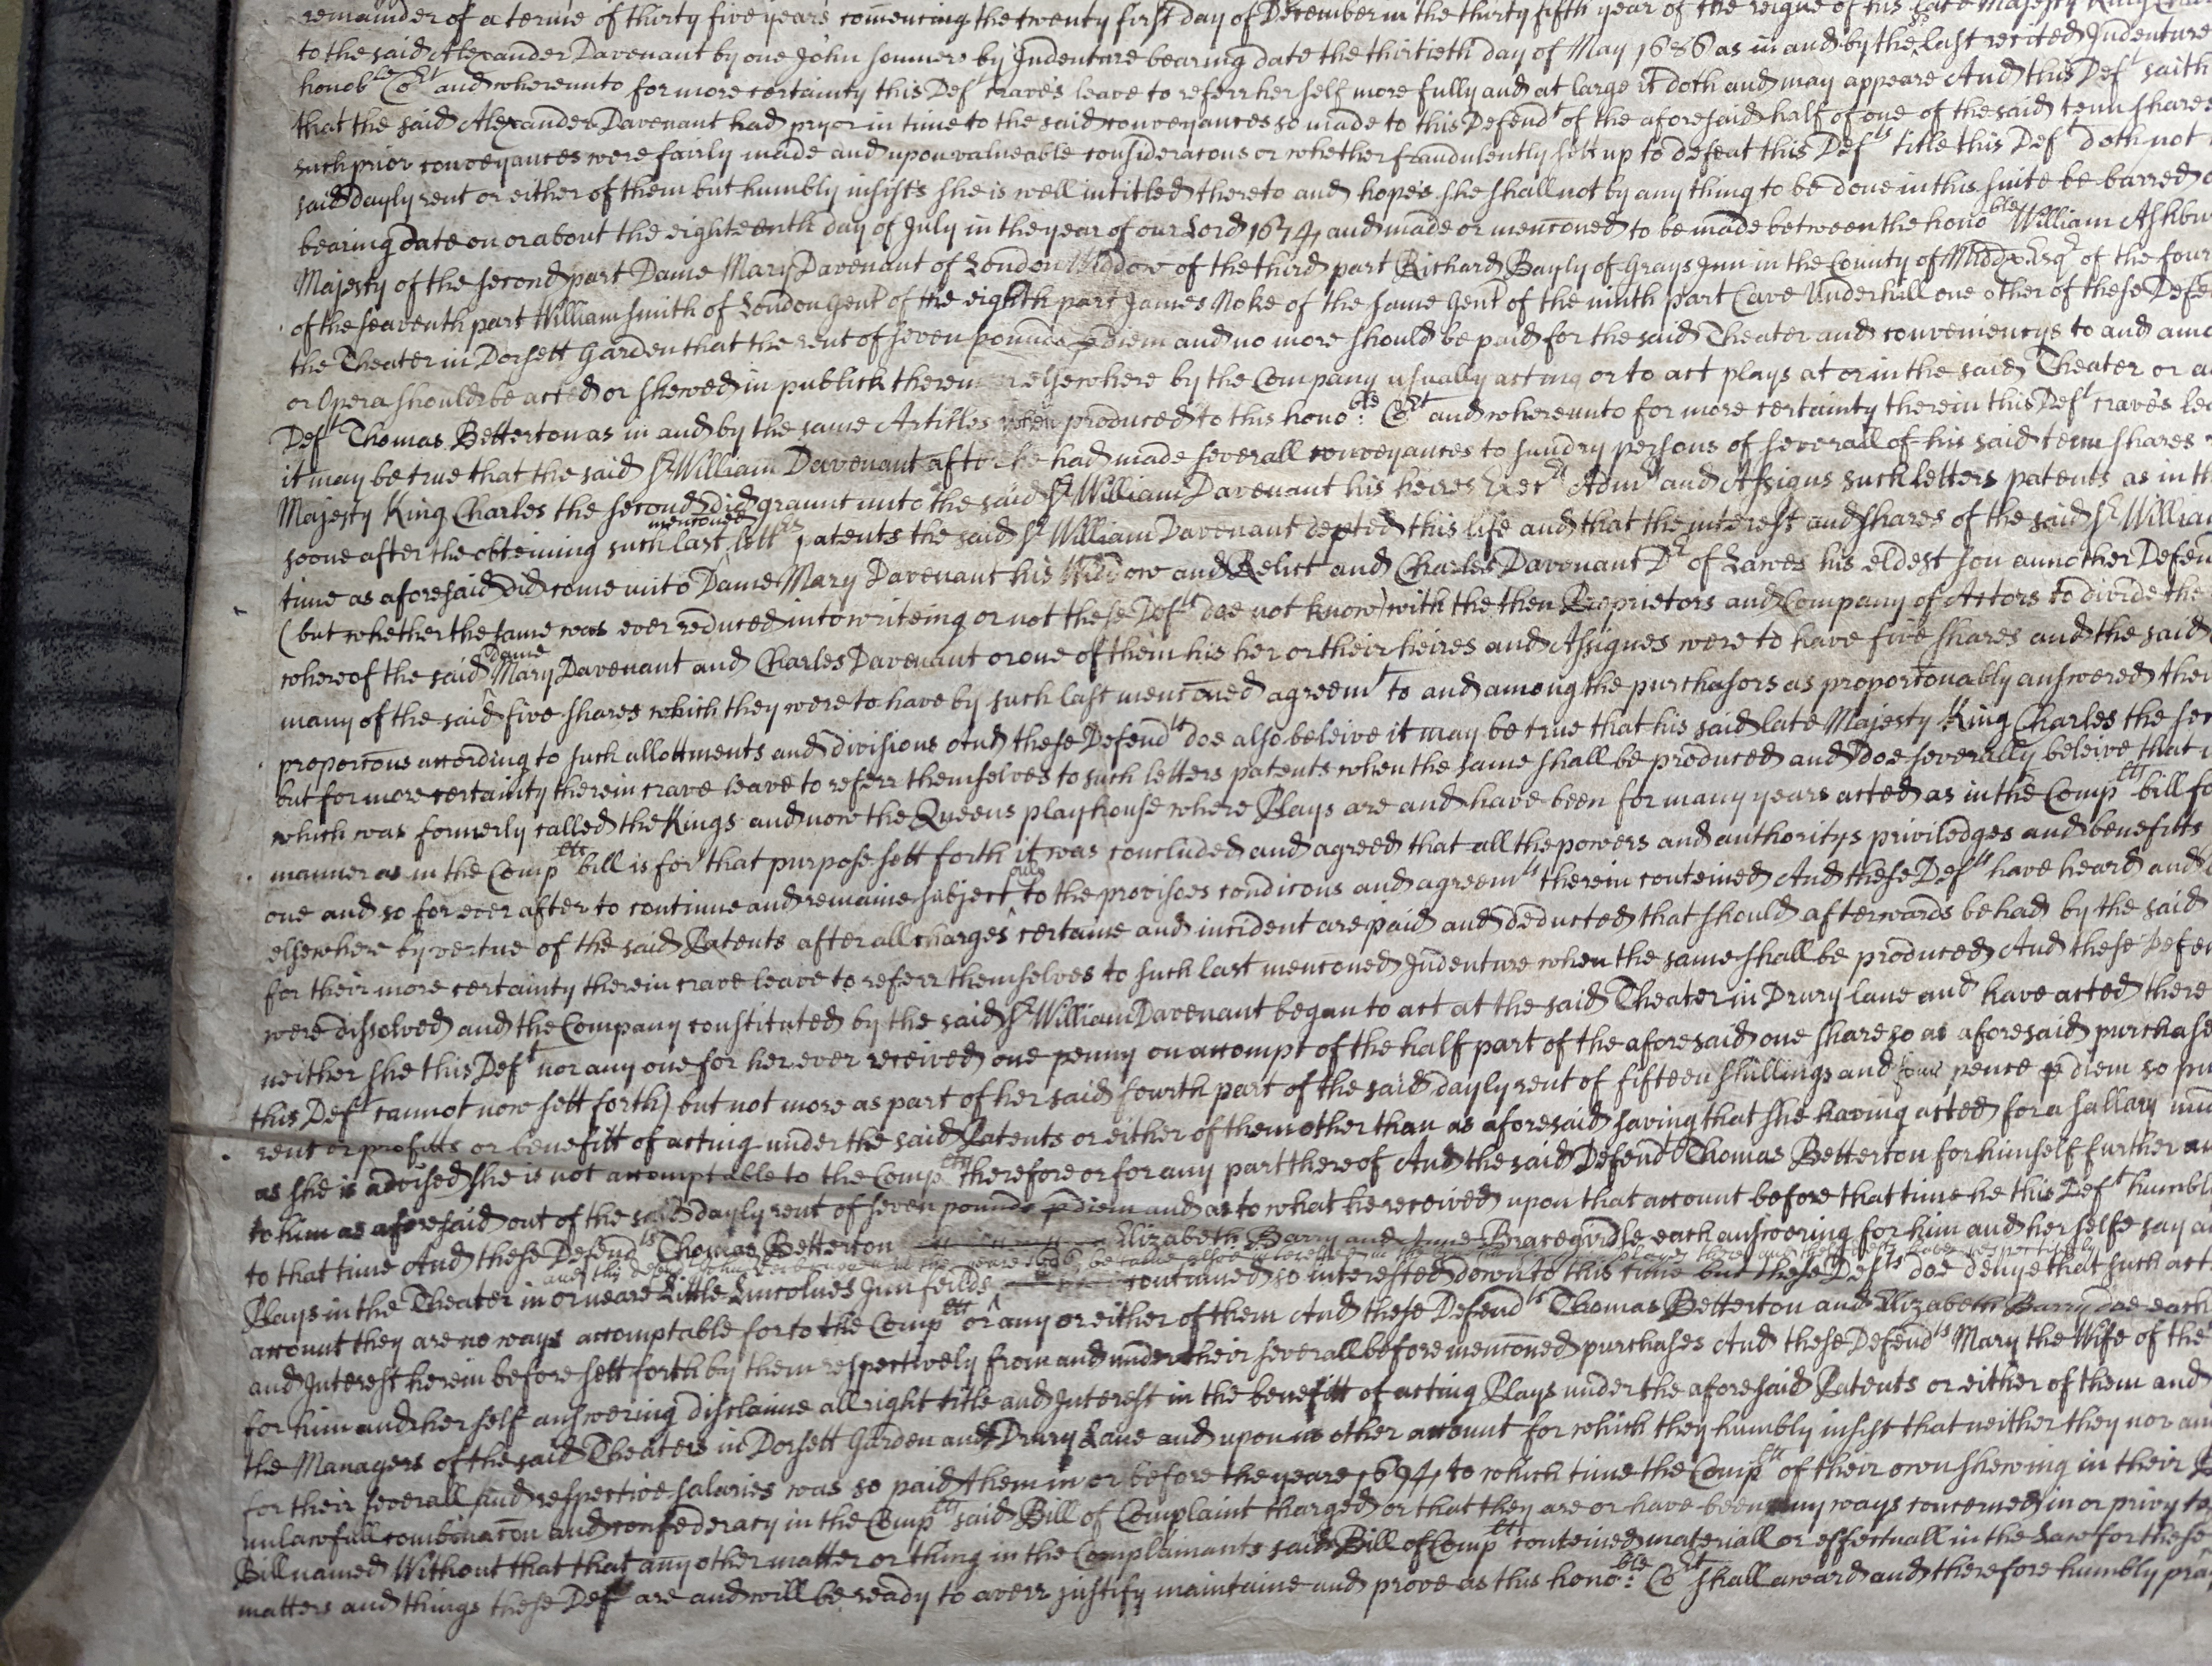 remainder of a terme of thirty five years comencing the twenty first day of December in the thirty fifth year of the reigne of his late Majesty King
to the said Alexander Davenant by one John Somner by Indenture bearing date the thirtieth day of May 1686 as in and by the last recited Indenture
honoble Cort and whereunto for more certainty this Deft craves leave to referr her self more fully and at large it doth and may appeare And this Deft saith
that the said Alexander Davenant had pryor in time to the said conveyances so made to this Defendt of the aforesaid half of one of the said tenn shares
such prior conveyances were fairly made and upon valueable consideracons or whether fraudulently sett up to defeat this Defts title this Deft doth not
said dayly rent or either of them but humbly insists she is well intitled thereto and hopes she shall not by any thing to be done in this suite be barred
bearing date on or about the eighteenth day of July in the year of our Lord 1674 and made or menconed to be made between the honoble William Ashbur
Majesty of the second part Dame Mary Davenant of London Widdow of the third part Richard Bayly of Grays Inn in the County of Middx Esqr of the four
of the seaventh part William Smith of London Gent of the eighth part James Noke of the same Gent of the ninth part Cave Underhill one other of these Defe
the Theater in Dorsett Garden that the rent of seven pounds p diem and no more should be paid for the said Theater and conveniencys to and amo
or Opera should be acted or shewed in publick therein or elsewhere by the Company usually acting or to act plays at or in the said Theater or
Deft Thomas Betterton as in and by the same Articles when produced to this honoble Cort and whereunto for more certainty therein this Deft craves lea
it may be true that the said Sr William Davenant after he had made severall conveyances to sundry persons of severall of his said tenn shares
Majesty King Charles the second did graunt unto the said Sr William Davenant his heires Execrs Admrs and Assigns such letters patents as in th
soone after the obteining such last menconed lettrs patents the said Sr William Davenant depted this life and that the interest and shares of the said Sr Willia
time as aforesaid did come unto Dame Mary Davenant his Widdow and Relict and Charles Davenant Dr of Lawes his eldest son annother Defen
(but whether the same was ever reduced into writeing or not these Defts doe not know) with the then Proprietors and Company of Actors to divide the
whereof the said dame Mary Davenant and Charles Davenant or one of them his her or their heires and Assignes were to have five shares and the said
many of the said five shares which they were to have by such last menconed agreemt to and among the purchasors as proporconably answered ther
proporcons according to such allottments and divisions And these Defendts doe also beleive it may be true that his said late Majesty King Charles the sec
but for more certainty therein crave leave to referr themselves to such letters patents when the same shall be produced and doe severally beleive that
which was formerly called the Kings and now the Queens playhouse where Plays are and have been for many years acted as in the Complts bill fo
manner as in the Complts bill is for that purpose sett forth it was concluded and agreed that all the powers and authoritys priviledges and benefitts
one and so for ever after to continue and remaine subject only to the provisoes condicons and agreemts therein conteined And these Defts have heard and
elsewhere by vertue of the said Patents after all charges certaine and incident are paid and deducted that should afterwards be had by the said
for their more certainty therein crave leave to referr themselves to such last menconed Indenture when the same shall be produced And these Defen
were dissolved and the Company constituted by the said Sr William Davenant began to act at the said Theater in Drury lane and have acted there
neither she this Deft nor any one for her ever received one penny on accompt of the half part of the aforesaid one share so as aforesaid purchase
this Deft cannot now sett forth) but not more as part of her said fourth part of the said dayly rent of fifteen shillings and four pence p diem so pu
rent or profitts or benefitt of acting under the said Patents or either of them other than as aforesaid saving that she having acted for a sallary
as she is advised she is not accomptable to the Complts therefore or for any part thereof And the said Defendt Thomas Betterton for himself further
to him as aforesaid out of the said dayly rent of seven pounds p diem and as to what he received upon that account before that time he this Deft humbl
to that time And these Defendts Thomas Betterton Elizabeth Barry and Anne Bracegirdle each answering for him and her selfe say
Plays in the Theater in or neare Little Lincolnes Inn feilds continued so interested down to this time but these Defts doe denye that such act
account they are no ways accomptable for to the Complts or any or either of them And these Defendts Thomas Betterton and Elizabeth Barry doe each
and Interest herein before sett forth by them respectively from and under their severall before menconed purchases And these Defendts Mary the Wife of the
for him and her self answering disclaime all right title and Interest in the benefitt of acting Plays under the aforesaid Patents or either of them and
the Managers of the said Theaters in Dorsett Garden and Drury Lane and upon no other account for which they humbly insist that neither they nor
for their severall and respective salaries was so paid them in or before the yeare 1694 to which time the Complts of their own shewing in their
unlawfull combinacon and confederacy in the Complts said Bill of Complaint charged or that they are or have been any ways concerned in or privy to
Bill named Without that that any other matter or thing in the Complainants said Bill of Complt conteined materiall or effectuall in the Law for these
matters and things these Defts are and will be ready to averr justify maintaine and prove as this honoble Cort shall award and therefore humbly pray